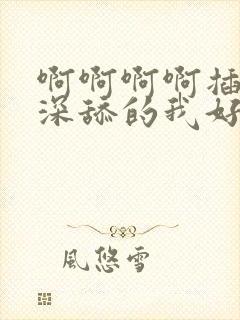 啊啊啊啊插
深舔的我好
風悠雪